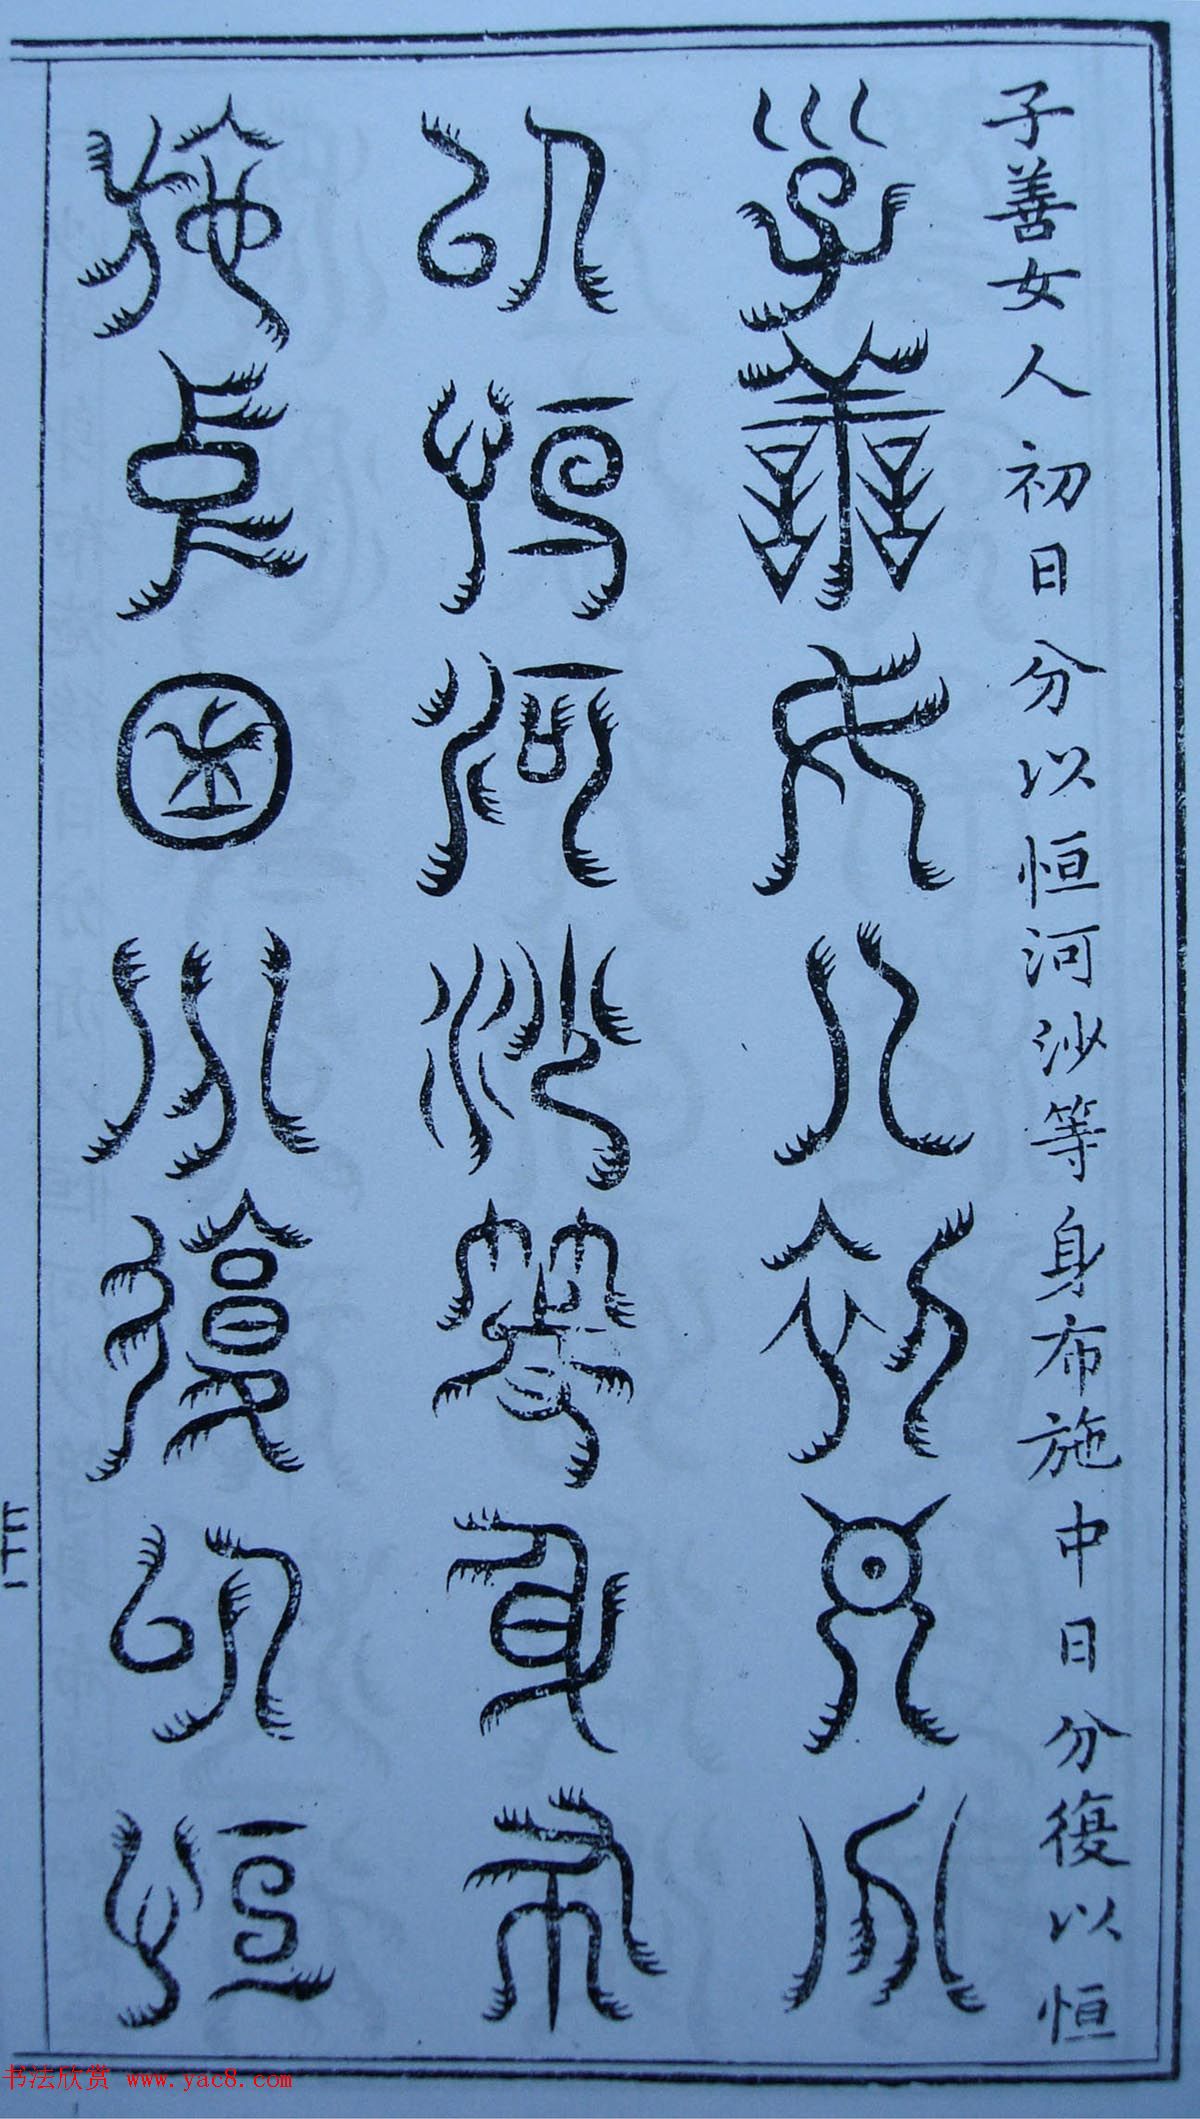 子善女人初日分以恒河沙等身布施中日分復以恒
子善女人初日分
以恒河沙等身布
施中日分復以恒
书法欣赏 www.yac8.com